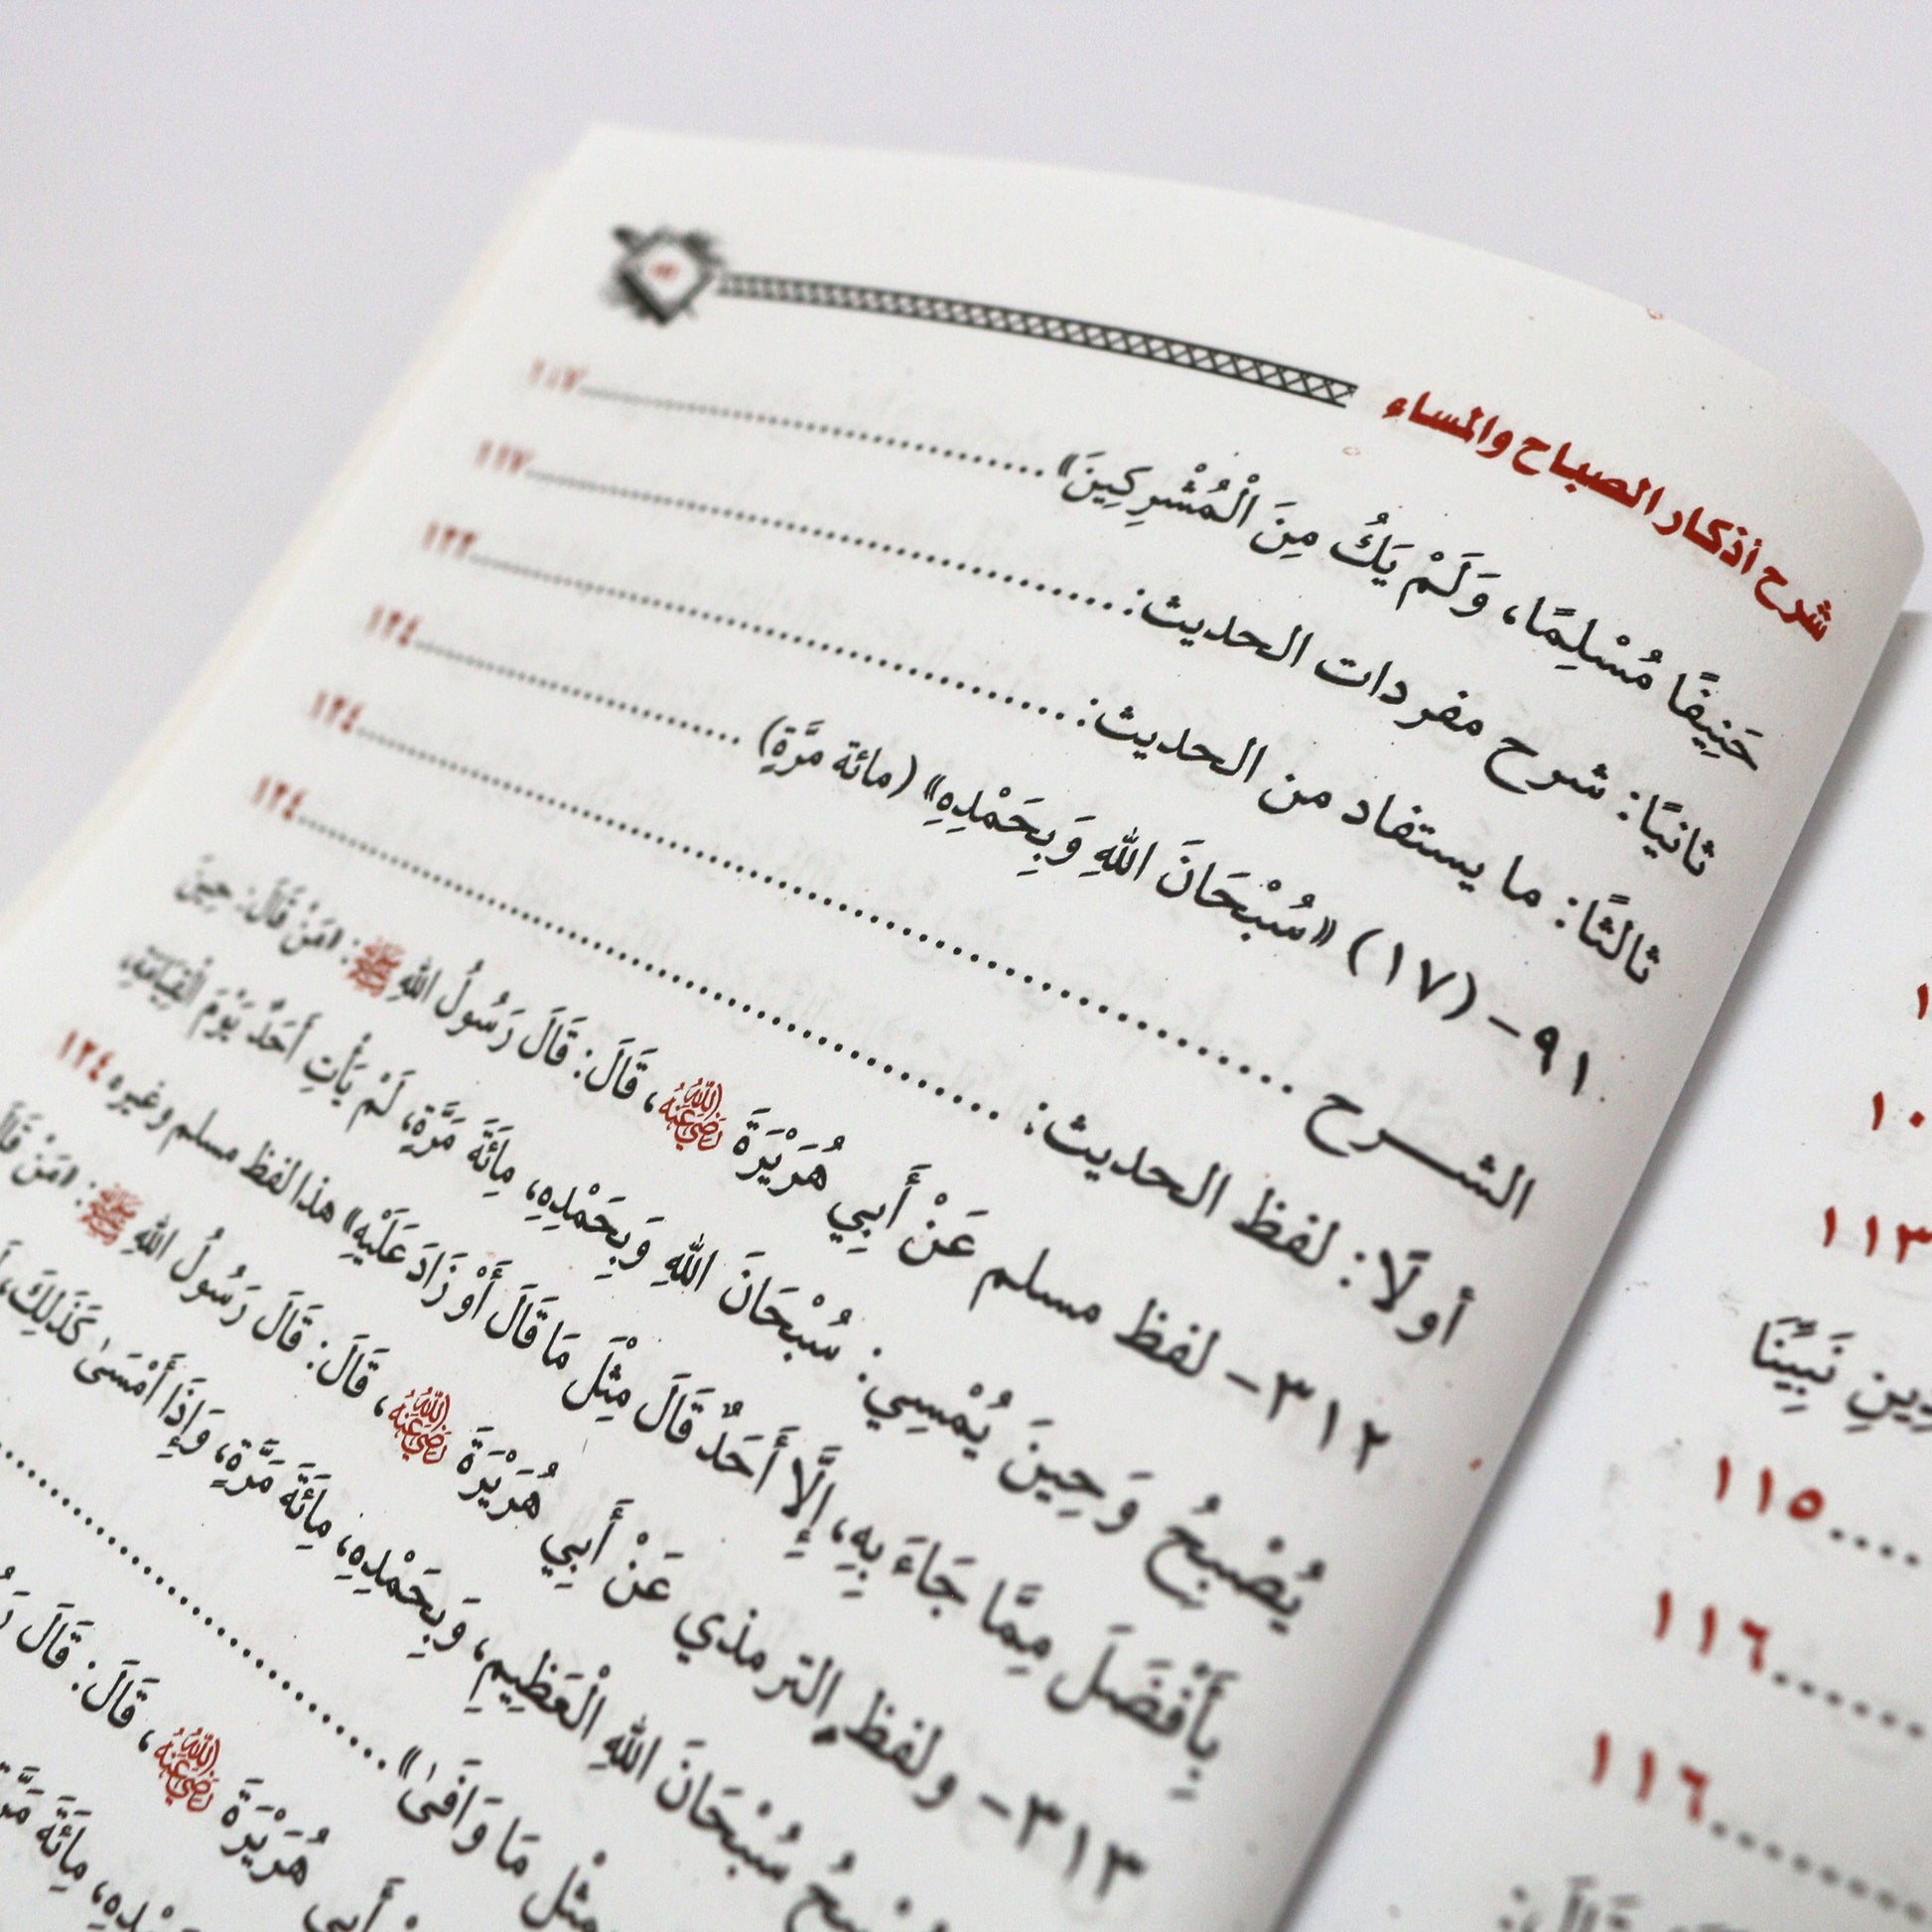 شرح أذكار الصباح والمساء
حَنِيفًا مُسْلِمًا، وَلَمْ يَكُ مِنَ الْمُشْرِكِينَ»
ثانيًا: شرح مفردات الحديث: ١١٧
ثالثًا: ما يستفاد من الحديث:
٩١- (١٧) «سُبْحَانَ اللهِ وَبِحَمْدِهِ» (مائة مَرَّةٍ) ١٢٤
الشرح ١٢٤
أولًا: لفظ الحديث: ١٢٤
٣١٢- لفظ مسلم عَنْ أَبِي هُرَيْرَةَ رَضِيَ اللَّهُ عَنْهُ، قَالَ: قَالَ رَسُولُ اللهِ ﷺ: «مَنْ قَالَ: حِينَ
يُصْبِحُ وَحِينَ يُمْسِي: سُبْحَانَ اللهِ وَبِحَمْدِهِ، مِائَةَ مَرَّةٍ، لَمْ يَأْتِ أَحَدٌ يَوْمَ الْقِيَامَةِ،
بِأَفْضَلَ مِمَّا جَاءَ بِهِ، إِلَّا أَحَدٌ قَالَ مِثْلَ مَا قَالَ أَوْ زَادَ عَلَيْهِ» هذا لفظ مسلم وغيره ١٢٤
٣١٣- ولفظ الترمذي عَنْ أَبِي هُرَيْرَةَ رَضِيَ اللَّهُ عَنْهُ، قَالَ: قَالَ رَسُولُ اللهِ ﷺ: «مَنْ قَالَ
سُبْحَانَ اللهِ الْعَظِيمِ، وَبِحَمْدِهِ، مِائَةَ مَرَّةٍ، وَإِذَا أَمْسَىٰ كَذَلِكَ،
بِمِثْلِ مَا وَافَىٰ»
أَبِي هُرَيْرَةَ رَضِيَ اللَّهُ عَنْهُ، قَالَ: قَالَ
مِائَةَ
١١٣
نَبِيِّنَا
١١٥
١١٦
١١٦